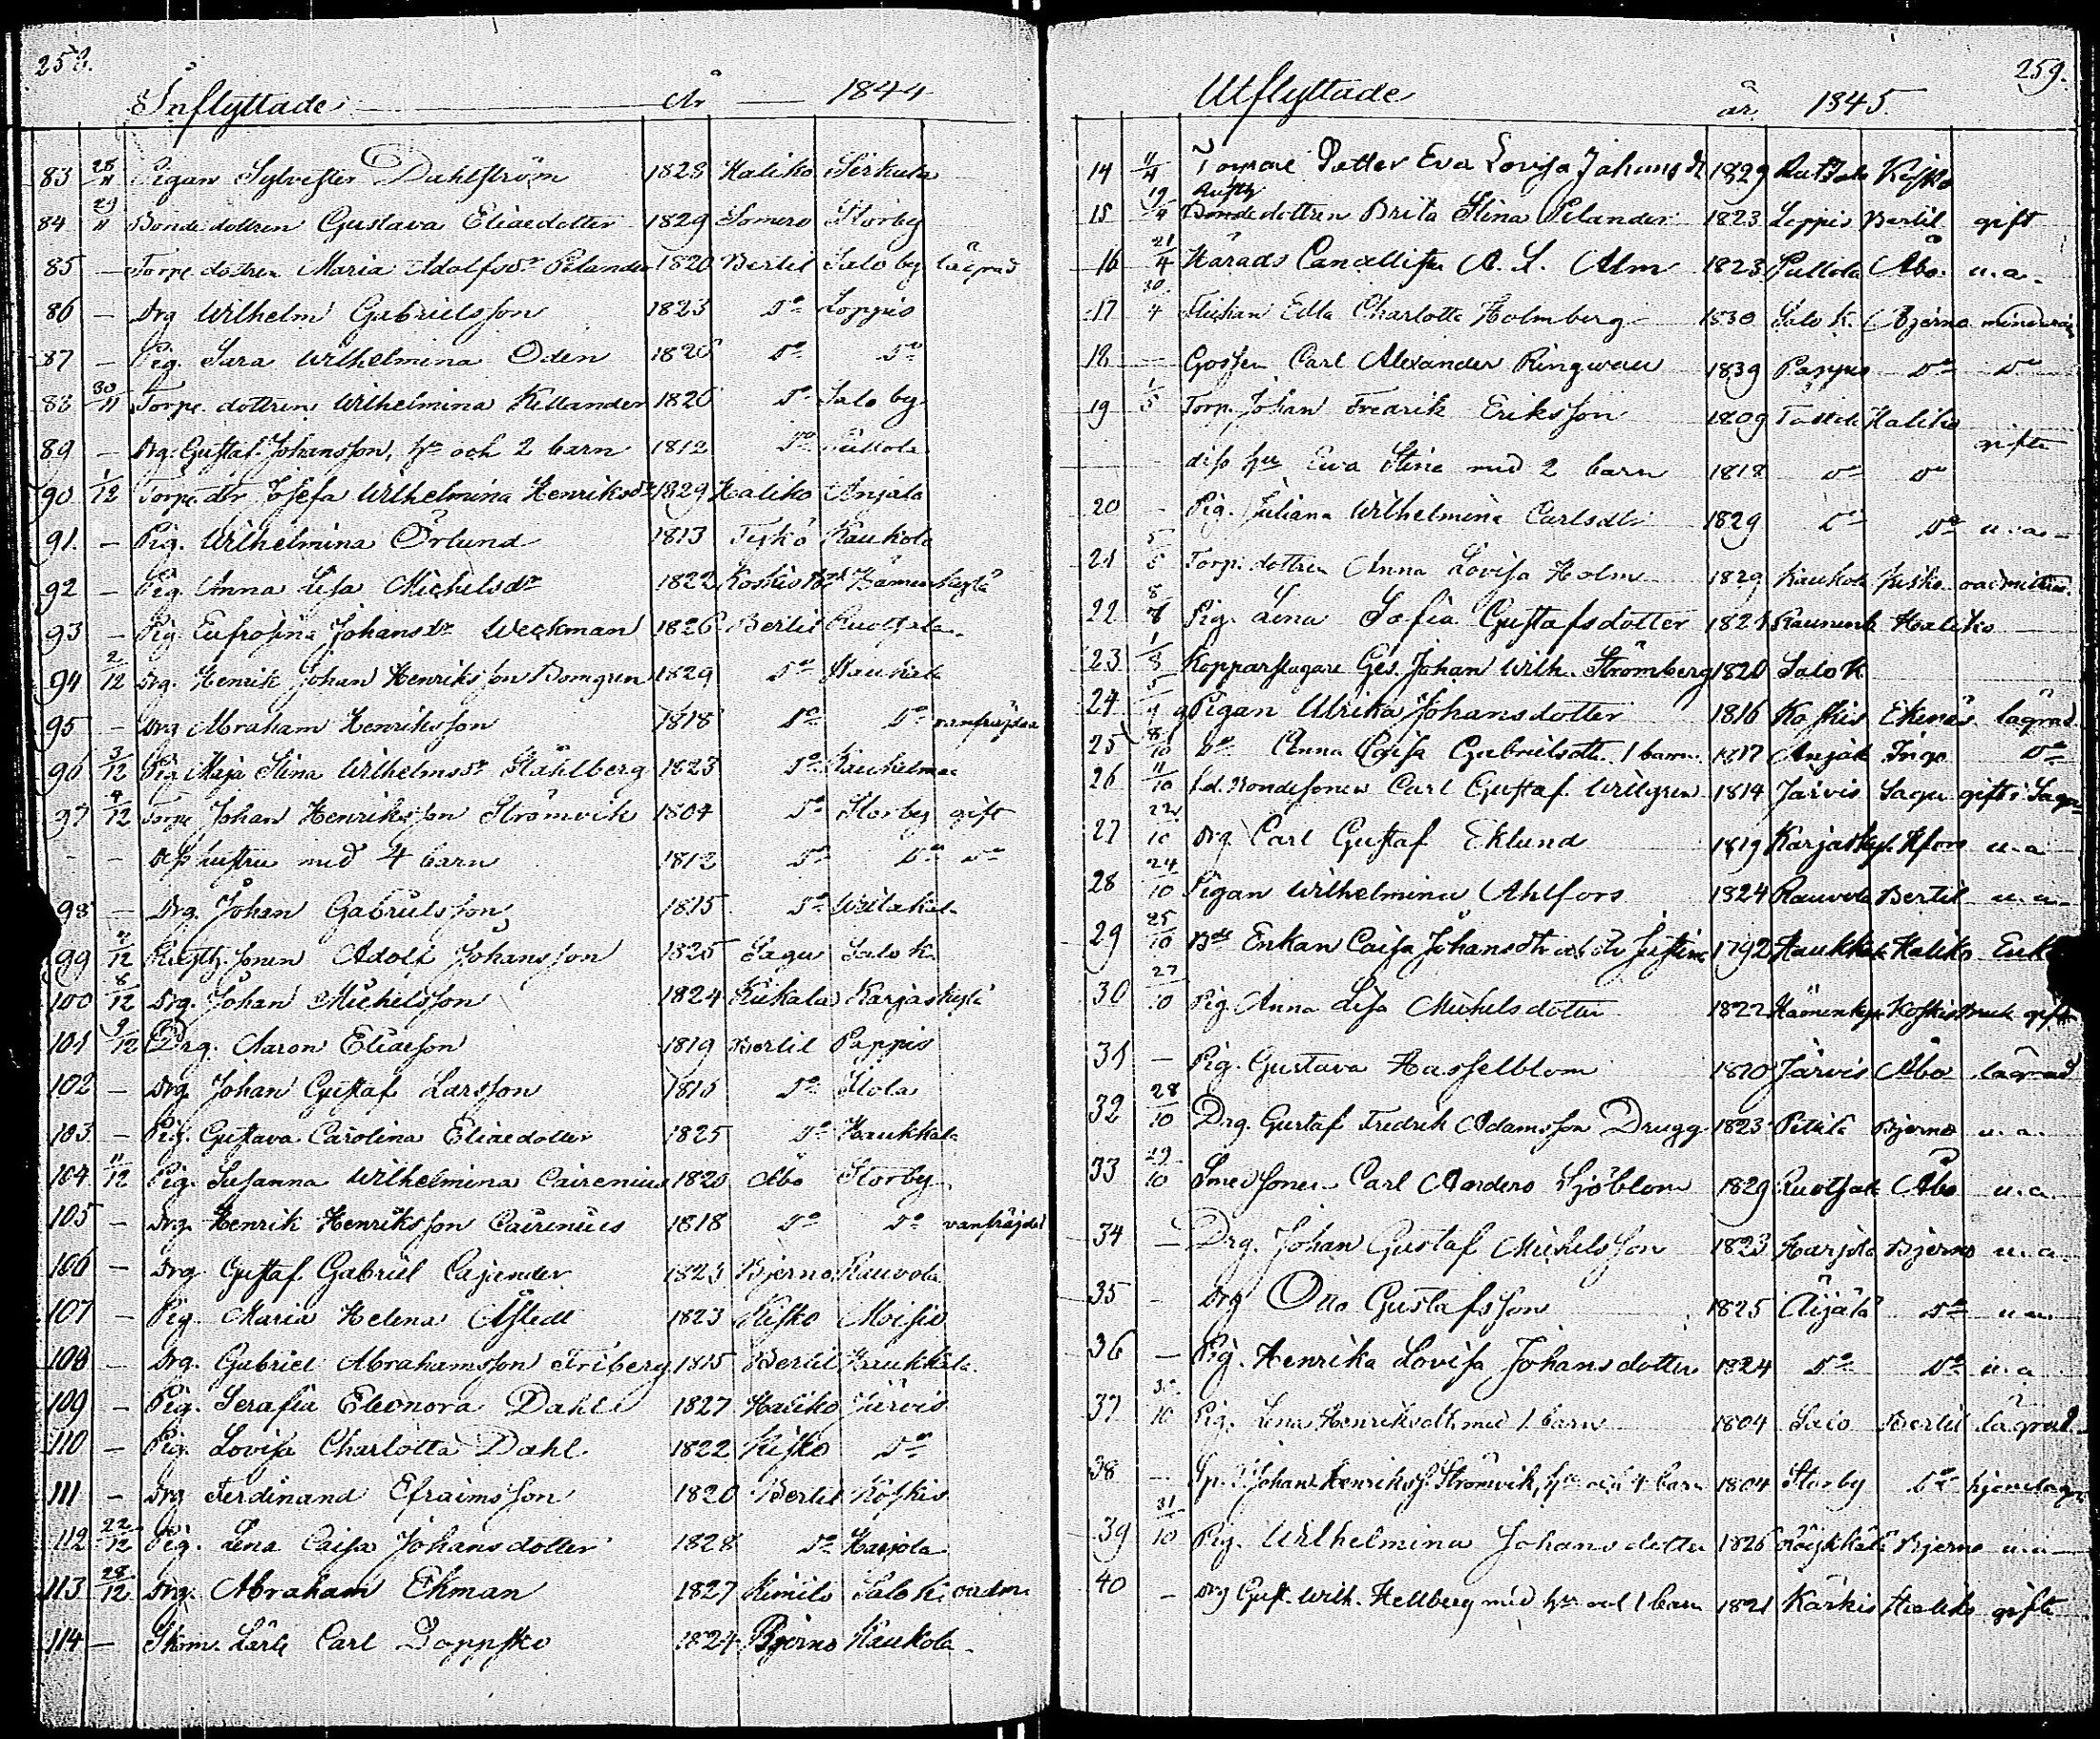 258.
Inflyttade År 1844
83 28/11 Pigan Sylvester Dahlström 1828 Haliko
84 29/11 Bondedottren Gustava Eliaedotter 1829 Somero Storby
85 — Torpe dottren Maria Adolfsdr Pelander 1820 Bertil Salo by lägrad
86 — Drg Wilhelm Gabrielsson 1823 Do Loppis
87 — Pig. Sara Wilhelmina Oden 1826 Do Do
88 30/11 Torpe dottren Wilhelmina Killander 1826 Do Salo by
89 — Drg. Gustaf Johansson, hu och 2 barn 1812 Do
90 1/12 Torpe dtr Josefa Wilhelmina Henriksdr 1829 Haliko Anjala
91. — Pig. Wilhelmina Örlund 1813 Kaukola
92 — Pig. Anna Lisa Michelsdr 1822 Koskis Hämenkylä
93 — Pig. Eufrosina Johansdr Weckman 1826 Bertil Ruotsala
94 2/12 Drg. Henrik Johan Henriksson Domgren 1829 Do
95 — Drg Abraham Henriksson 1818 Do Do vanfräjdad
96 3/12 Pig. Maja Stina Wilhelmsdr Ståhlberg 1823 Do
97 4/12 Torp Johan Henriksson Strömvik 1804 Do Storby gift
- — dess hustru med 4 barn 1812 Do Do Do
98 — Drg. Johan Gabrielsson 1815 Do
99 7/12 Rusth. sonen Adolf Johansson 1825 Sagu Salo K.
100 8/12 Drg. Johan Michelsson 1824 Kiikala Karjaskylä
101 9/12 Drg. Aaron Eliaesson 1819 Bertil Pappis
102 — Drg Johan Gustaf Larsson 1815 Do
103. — Pig. Gustava Carolina Eliaedotter 1825 Do Haukkala
104 11/12 Pig. Susanna Wilhelmina Cairenius 1820 Åbo Storby
105 — Drg. Henrik Henriksson Cairenius 1818 Do Do vanfräjdad
106 — Drg Gustaf Gabriel Cajander 1823 Bjerno Rauvola
107 — Pig. Maria Helena Åstedt 1823 Kisko Moisio
108 — Drg. Gabriel Abrahamsson Friberg 1815 Bertil Haukkala
109 — Pig. Serafia Eleonora Dahl 1827 Haliko Järvis
110 — Pig. Lovisa Charlotta Dahl 1822 Kisko Do
111 — Drg Ferdinand Efraimsson 1820 Bertil Koskis
112 22/12 Pig. Lena Caisa Johansdotter 1828 Do Harjola
113 28/12 Drg. Abraham Ekman 1827 Kimito Salo K. oadm.
114 — Skom. Lärl. Carl 1824 Bjerno Kaukola
259.
Utflyttade år 1845.
14 11/4 Torpare Dotter Eva Lovisa Johansdr 1829 Kisko
Rusth
15 19/4 Bonde dottren Brita Stina Pelander 1823 Loppis Bertil gift
16 21/4 Härads Cancellisten A. L. Alm 1823 Pullola Åbo. u.a.
17 30/4 Flickan Edla Charlotta Holmberg 1830 Salo K. Bjerno
18 — Gossen Carl Alexander Ringwall 1839 Pappis Do Do
19 1/5 Torp. Johan Fredrik Eriksson 1809 Haliko
gifte
— diss hu Eva Stina med 2 barn 1818 Do Do
20 - Pig. Juliana Wilhelmina Carlsdtr 1829 Do Do u.a.
21 5/5 Torp. dottren Anna Lovisa Holm 1829 Kaukola Kisko oadmitterad
22 8/7 Pig. Lena Sofia Gustafsdotter 1821 Haliko
23 1/8 Kopparslagare Ges. Johan Wilh. Strömberg 1820 Salo K.
24 5/9 Pigan Ulrika Johansdotter 1816 Koskis Ekenäs lägrad
25 8/10 Do Anna Caisa Gabrielsdtr. 1 barn 1817 Anjala Do
26 11/10 f.d. Bondesonen Carl Gustaf Wilgren 1814 Järvis Sagu gift i Sagu
27 22/10 Drg. Carl Gustaf Eklund 1819 Karjaskyl. Hfors u.a
28 24/10 Pigan Wilhelmina Ahlfors 1824 Rauvola Bertil u.a.
29 25/10 Bde Enkan Caisa Johansdtr 1792 Haukkala Haliko Enk
30 27/10 Pig. Anna Lisa Michelsdotter 1822 Hämenkyl Koskis Bruk gift
31 — Pig. Gustava Hasselblom 1820 Järvis Åbo lägrad
32 28/10 Drg. Gustaf Fredrik Adamsson Drugg 1823 Petilä Bjerno u.a.
33 29/10 Smedsonen Carl Anders Sjöblom 1829 Ruotsala Åbo u.a.
34 — Drg. Johan Gustaf Michelsson 1823 Harjola Bjerno u.a.
35 - Drg Otto Gustafsson 1825 Äijälä Do u.a.
36 — Pig. Henrika Lovisa Johansdotter 1824 Do Do u.a
37 30/10 Pig. Lena Henriksdtr. med 1 barn 1804 Salo Bertil lägrad
38 — Johan Henrikss. Strömvik, hu och 4 barn 1804 Storby Do
39 31/10 Pig. Wilhelmina Johansdotter 1826 Bjerno u.a
40 — Drg Gust. Wilh. Hellberg med hu och 1 barn 1821 Kärkis Haliko gifte